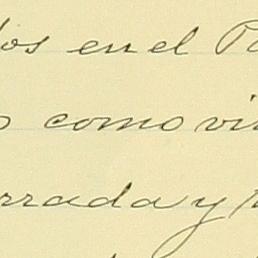 dos en el Pa
s como vi
rrada y